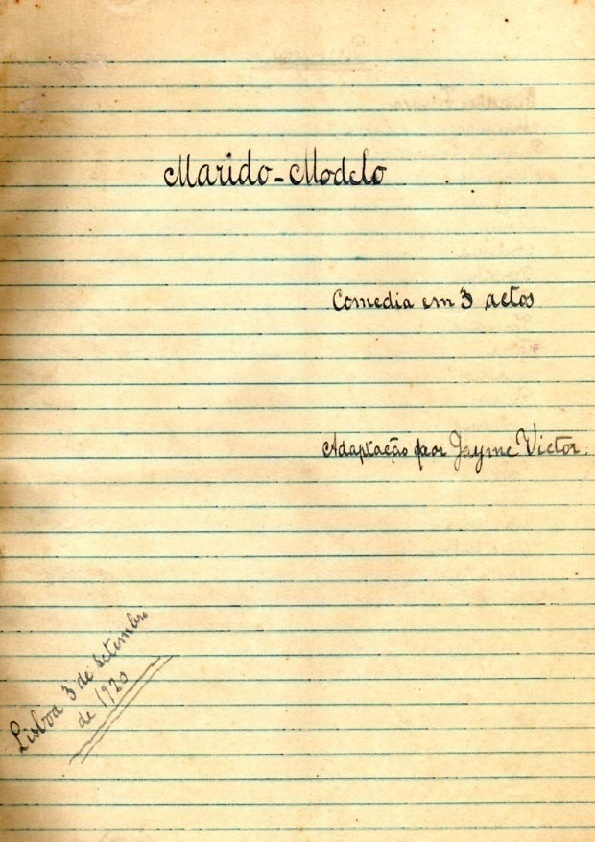 Marido-Modelo
Comedia em 3 actos
Adaptação por Jayme Victor.
Lisboa 3 de Setembro
de 1920